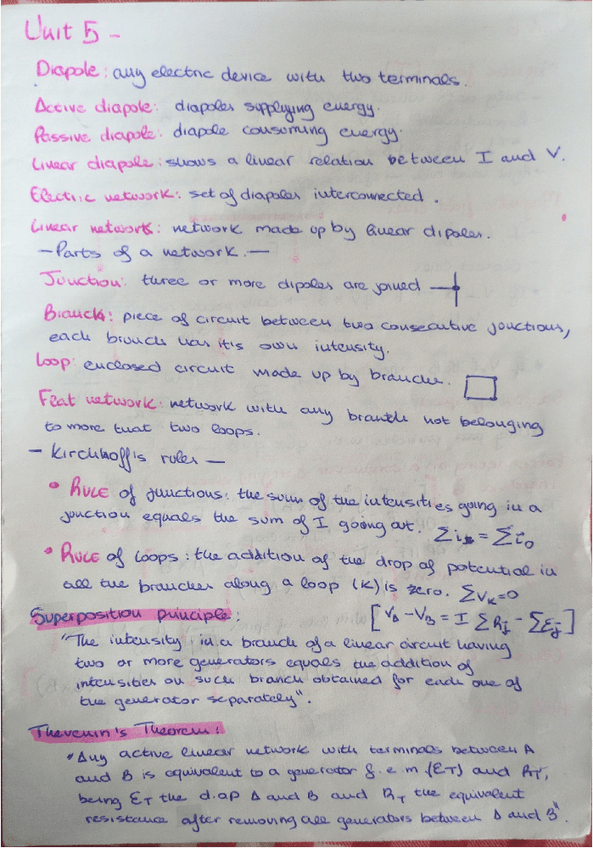 Unit 5 -
Diapole: any electric device with two terminals.
Active diapole: diapoles supplying energy.
Passive diapole: diapole consuming energy.
Linear diapole: shows a linear relation between I and V.
Electric network: set of diapoles interconnected.
Linear network: network made up by linear dipoles.
— Parts of a network. —
Junction: three or more dipoles are joined
Branch: piece of circuit between two consecutive jonctions,
each branch has it's own intensity.
Loop: enclosed circuit made up by branches.
Flat network: network with any branch not belonging
to more that two loops.
— Kirchhoff's rules —
• RULE of junctions: the sum of the intensities going in a
jonction equals the sum of I going out. Σi = Σi₀
• RULE of loops: the addition of the drop of potential in
all the branches along a loop (K) is zero. ΣVₖ=0
Superposition principle: [VA - VB = I ΣRj - ΣEj]
"The intensity in a branch of a linear circuit having
two or more generators equals the addition of
intensities on such branch obtained for each one of
the generator separately".
Thevenin's Theorem:
"Any active linear network with terminals between A
and B is equivalent to a generator f.e.m (ET) and RT,
being ET the d.o.p A and B and RT the equivalent
resistance after removing all generators between A and B"